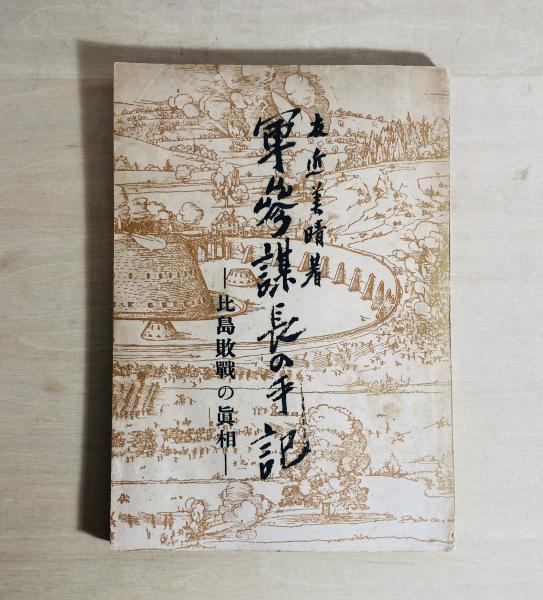 友近美晴著
軍参謀長の手記
―比島敗戰の眞相―